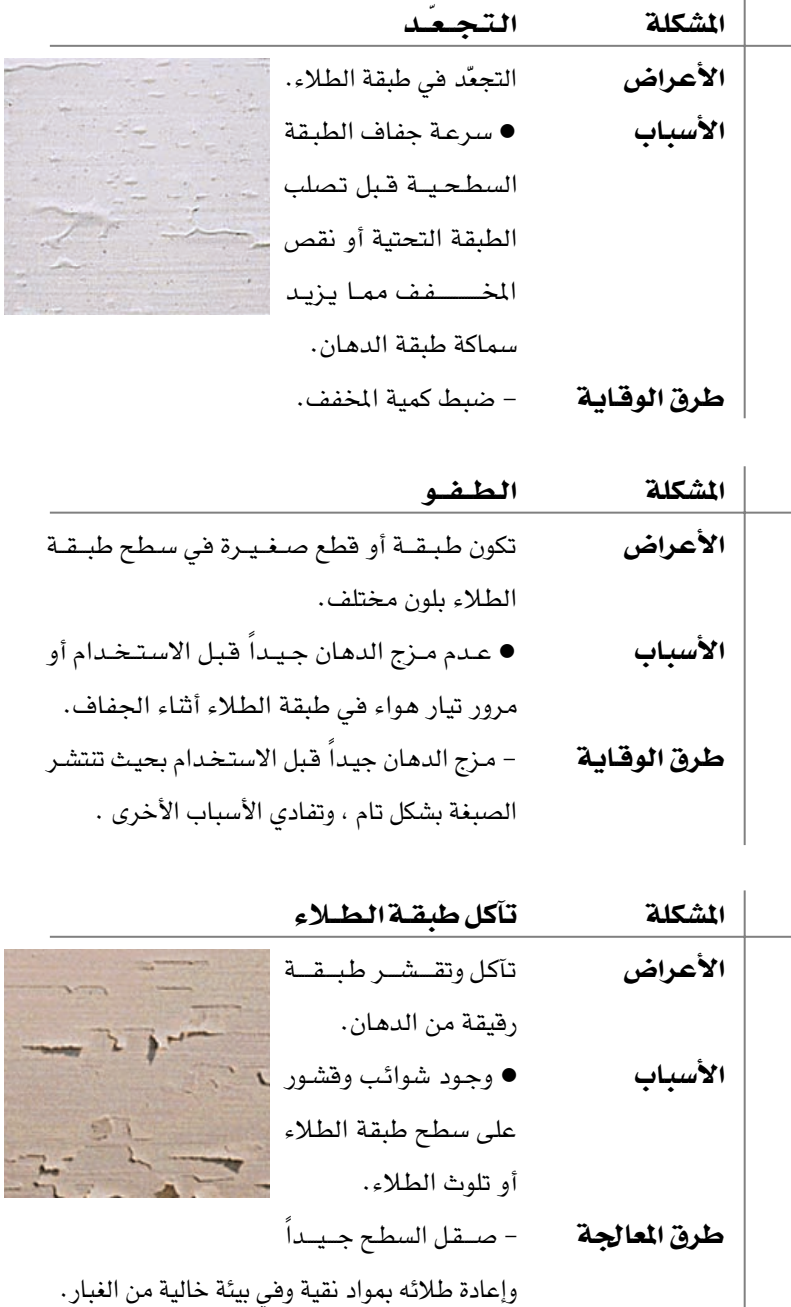 المشكلة التجعّد
الأعراض التجعّد في طبقة الطلاء.
الأسباب ● سرعة جفاف الطبقة
السطحية قبل تصلب
الطبقة التحتية أو نقص
المخفف مما يزيد
سماكة طبقة الدهان.
طرق الوقاية – ضبط كمية المخفف.
المشكلة الطفو
الأعراض تكون طبقة أو قطع صغيرة في سطح طبقة
الطلاء بلون مختلف.
الأسباب ● عدم مزج الدهان جيداً قبل الاستخدام أو
مرور تيار هواء في طبقة الطلاء أثناء الجفاف.
طرق الوقاية – مزج الدهان جيداً قبل الاستخدام بحيث تنتشر
الصبغة بشكل تام ، وتفادي الأسباب الأخرى .
المشكلة تآكل طبقة الطلاء
الأعراض تآكل وتقشر طبقة
رقيقة من الدهان.
الأسباب ● وجود شوائب وقشور
على سطح طبقة الطلاء
أو تلوث الطلاء.
طرق المعالجة – صقل السطح جيداً
وإعادة طلائه بمواد نقية وفي بيئة خالية من الغبار.